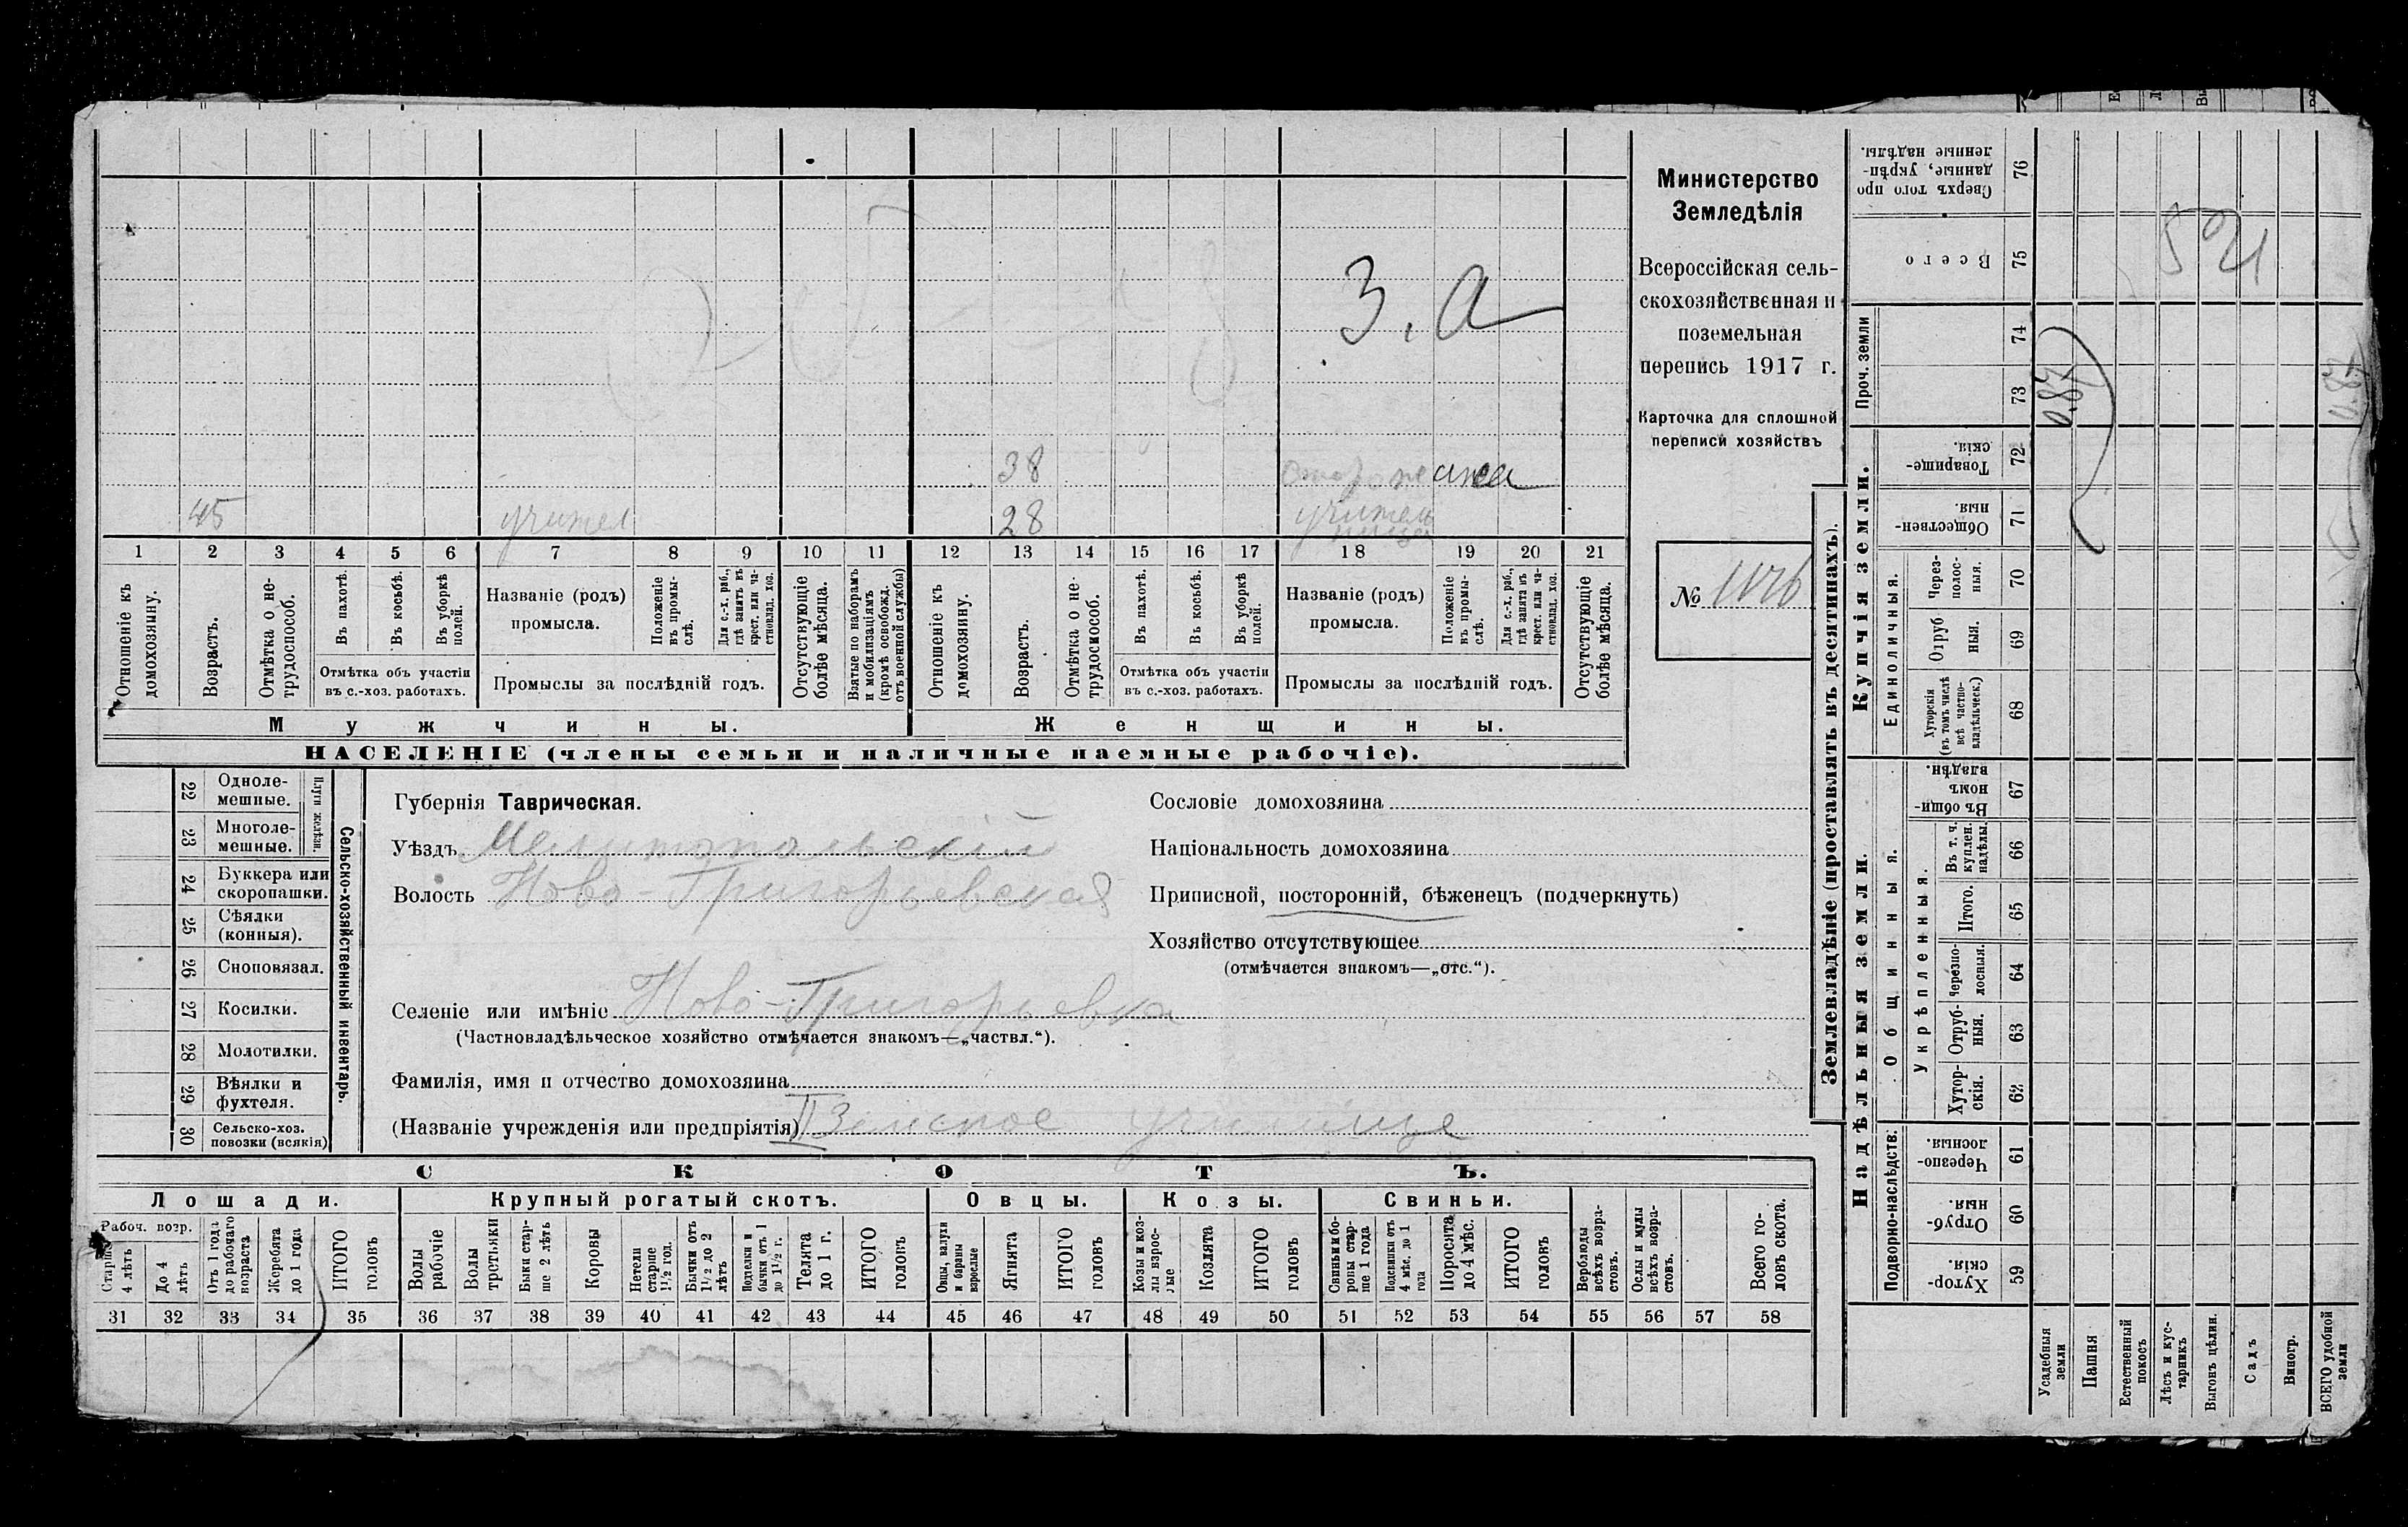 З. а
38 сторожиха
45 учител 28 учительница
1 2 3 4 5 6 7 8 9 10 11 12 13 14 15 16 17 18 19 20 21
Отношеніе къ домохозяину.
Возрастъ.
Отмѣтка о нетрудоспособ.
Въ пахотѣ.
Въ косьбѣ.
Въ уборкѣ полей.
Отмѣтка объ участіи
въ с.-хоз. работахъ.
Названіе (родъ)
промысла.
Положеніе въ промыслѣ.
Для с.-х. раб., гдѣ занятъ въ крест. или частновлад. хоз.
Промыслы за послѣдній годъ.
Отсутствующіе болѣе мѣсяца.
Взятые по наборамъ и мобилизаціямъ (кромѣ освобожд. отъ военной службы)
Отношеніе къ домохозяину.
Возрастъ.
Отмѣтка о нетрудоспособ.
Въ пахотѣ.
Въ косьбѣ.
Въ уборкѣ полей.
Отмѣтка объ участіи
въ с.-хоз. работахъ.
Названіе (родъ)
промысла.
Положеніе въ промыслѣ.
Для с.-х. раб., гдѣ занята въ крест. или частновлад. хоз.
Промыслы за послѣдній годъ.
Отсутствующіе болѣе мѣсяца.
Мужчины. Женщины.
НАСЕЛЕНІЕ (члены семьи и наличные наемные рабочіе).
Министерство
Земледѣлія
Всероссійская сель-
скохозяйственная и
поземельная
перепись 1917 г.
Карточка для сплошной
переписи хозяйствъ
№
Сельско-хозяйственный инвентарь.
Плуги желѣзн.
22 Одноле-
мешные.
23 Многоле-
мешные.
24 Буккера или
скоропашки.
25 Сѣялки
(конныя).
26 Сноповязал.
27 Косилки.
28 Молотилки.
29 Вѣялки и
фухтеля.
30 Сельско-хоз.
повозки (всякія)
Губернія Таврическая.
Уѣздъ Мелитопольскій
Волость Ново-Григорьевская
Селеніе или имѣніе Ново-Григорьевка
(Частновладѣльческое хозяйство отмѣчается знакомъ—„частвл.“).
Фамилія, имя и отчество домохозяина
(Названіе учрежденія или предпріятія) II Земское училище
Сословіе домохозяина
Національность домохозяина
Приписной, посторонній, бѣженецъ (подчеркнуть)
Хозяйство отсутствующее
(отмѣчается знакомъ—„отс.“).
СКОТЪ.
Лошади. Крупный рогатый скотъ. Овцы. Козы. Свиньи.
Рабоч. возр.
Старше 4 лѣтъ
До 4 лѣтъ
Отъ 1 года до рабочаго возраста
Жеребята до 1 года
ИТОГО головъ
Волы рабочіе
Волы третьяки
Быки старше 2 лѣтъ
Коровы
Нетели старше 1½ год.
Бычки отъ 1½ до 2 лѣтъ
Подтелки и бычки отъ 1 до 1½ г.
Телята до 1 г.
ИТОГО головъ
Овцы, валухи и бараны взрослые
Ягнята
ИТОГО головъ
Козы и козлы взрослые
Козлята
ИТОГО головъ
Свиньи и боровы старше 1 года
Подсвинки отъ 4 мѣс. до 1 года
Поросита до 4 мѣс.
ИТОГО головъ
Верблюды всѣхъ возрастовъ.
Ослы и мулы всѣхъ возрастовъ.
Всего головъ скота.
31 32 33 34 35 36 37 38 39 40 41 42 43 44 45 46 47 48 49 50 51 52 53 54 55 56 57 58
Землевладѣніе (проставлять въ десятинахъ).
Купчія земли.
Надѣльныя земли.
Сверхъ того проданные, укрѣпленные надѣлы. 76
Всего 75
Проч. земли
74
73 0.87 0.87
Товарищескія. 72
Общественныя. 71
Единоличныя.
Черезполосныя. 70
Отрубныя. 69
Хуторскія (въ томъ числѣ всѣ частновладѣльческ.) 68
Общинныя.
Въ общинномъ владѣн. 67
Укрѣпленныя.
Въ т. ч. куплен. надѣлы. 66
Итого. 65
Черезполосныя. 64
Отрубныя. 63
Хуторскія. 62
Подворно-наслѣдств.
Черезполосныя. 61
Отрубныя. 60
Хуторскія. 59
Усадебныя земли
Пашня
Естественный покосъ
Лѣсъ и кустарникъ
Выгонъ цѣлин.
Садъ
Виногр.
ВСЕГО удобной земли